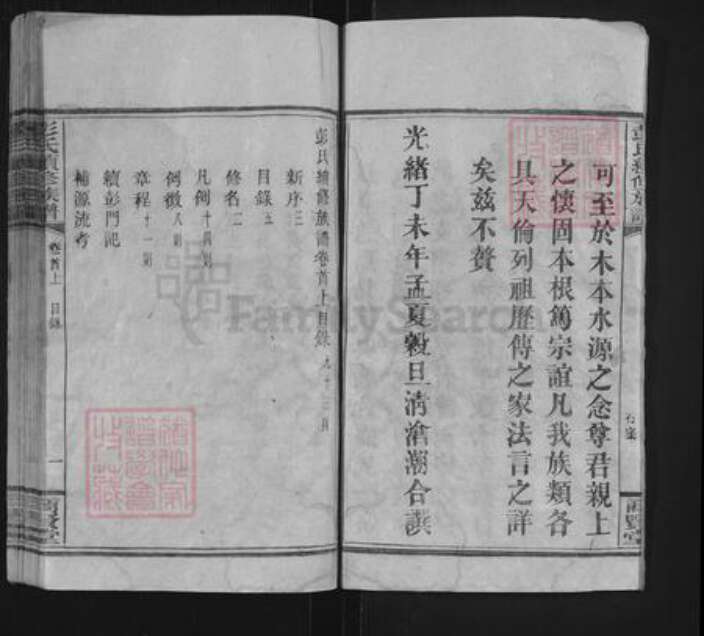 可至於木本水源之念尊君親上
之懷固本根篤宗誼凡我族類各
具天倫列祖歷傳之家法言之詳
矣茲不贅
光緒丁未年孟夏穀旦清滄潮合譔
彭氏續修族譜卷首上目錄
新序三
目錄五
修名二
凡例十四則
例徵八則
章程十一則
續彭門記
補源流考
彭氏續修族譜
卷首上
目錄
一
FamilySearch